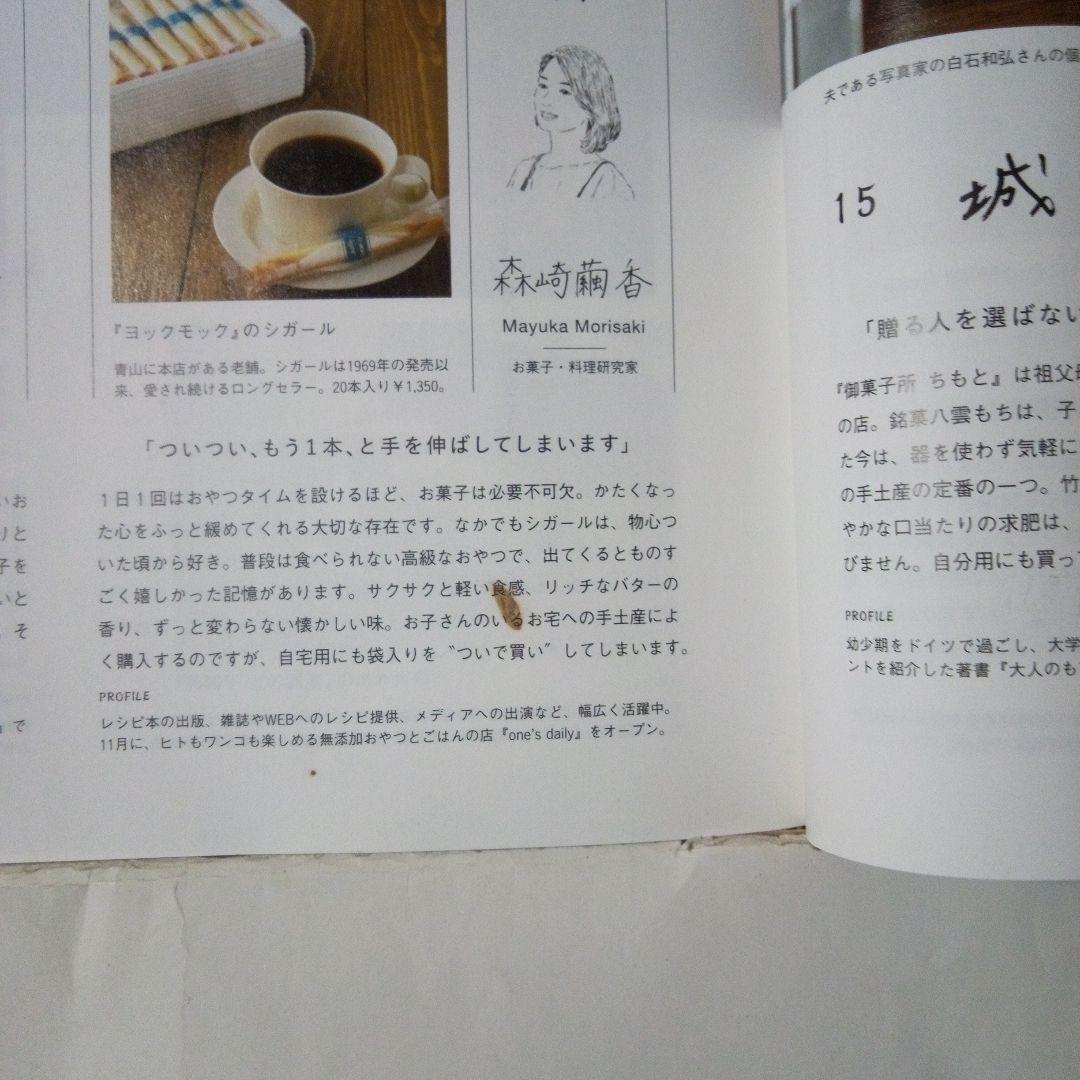 『ヨックモック』のシガール
青山に本店がある老舗。シガールは1969年の発売以
来、愛され続けるロングセラー。20本入り￥1,350。
森崎繭香
Mayuka Morisaki
お菓子・料理研究家
「ついつい、もう1本、と手を伸ばしてしまいます」
1日1回はおやつタイムを設けるほど、お菓子は必要不可欠。かたくなっ
た心をふっと緩めてくれる大切な存在です。なかでもシガールは、物心つ
いた頃から好き。普段は食べられない高級なおやつで、出てくるとものす
ごく嬉しかった記憶があります。サクサクと軽い食感、リッチなバターの
香り、ずっと変わらない懐かしい味。お子さんのいるお宅への手土産によ
く購入するのですが、自宅用にも袋入りを〝ついで買い〟してしまいます。
PROFILE
レシピ本の出版、雑誌やWEBへのレシピ提供、メディアへの出演など、幅広く活躍中。
11月に、ヒトもワンコも楽しめる無添加おやつとごはんの店『one's daily』をオープン。
いお
りと
子を
いと
。そ
で
夫である写真家の白石和弘さんの個
15 城
「贈る人を選ばない
『御菓子所 ちもと』は祖父母
の店。銘菓八雲もちは、子
た今は、器を使わず気軽に
の手土産の定番の一つ。竹
やかな口当たりの求肥は、
びません。自分用にも買っ
PROFILE
幼少期をドイツで過ごし、大学
ントを紹介した著書『大人のも